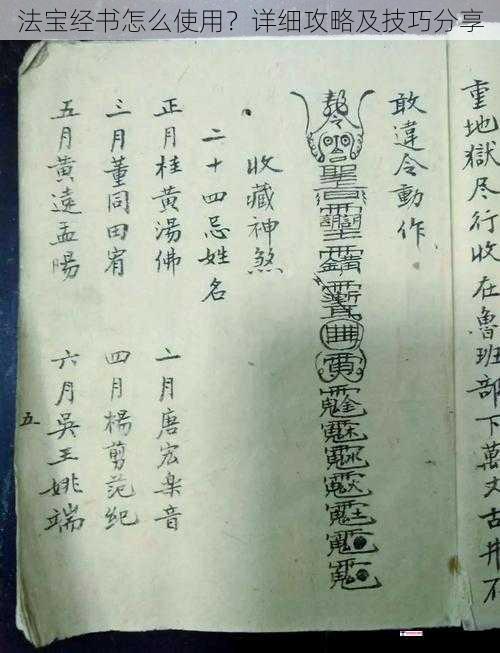 法宝经书怎么使用？详细攻略及技巧分享
重地獄尽行收在魯班部下萬丈古井不
敢違令動作
收藏神煞
二十四忌姓名
正月桂黃湯佛
二月唐宏樂音
三月董同田宥
四月楊剪范紀
五月黃遠孟暘
六月吳王姚端
五